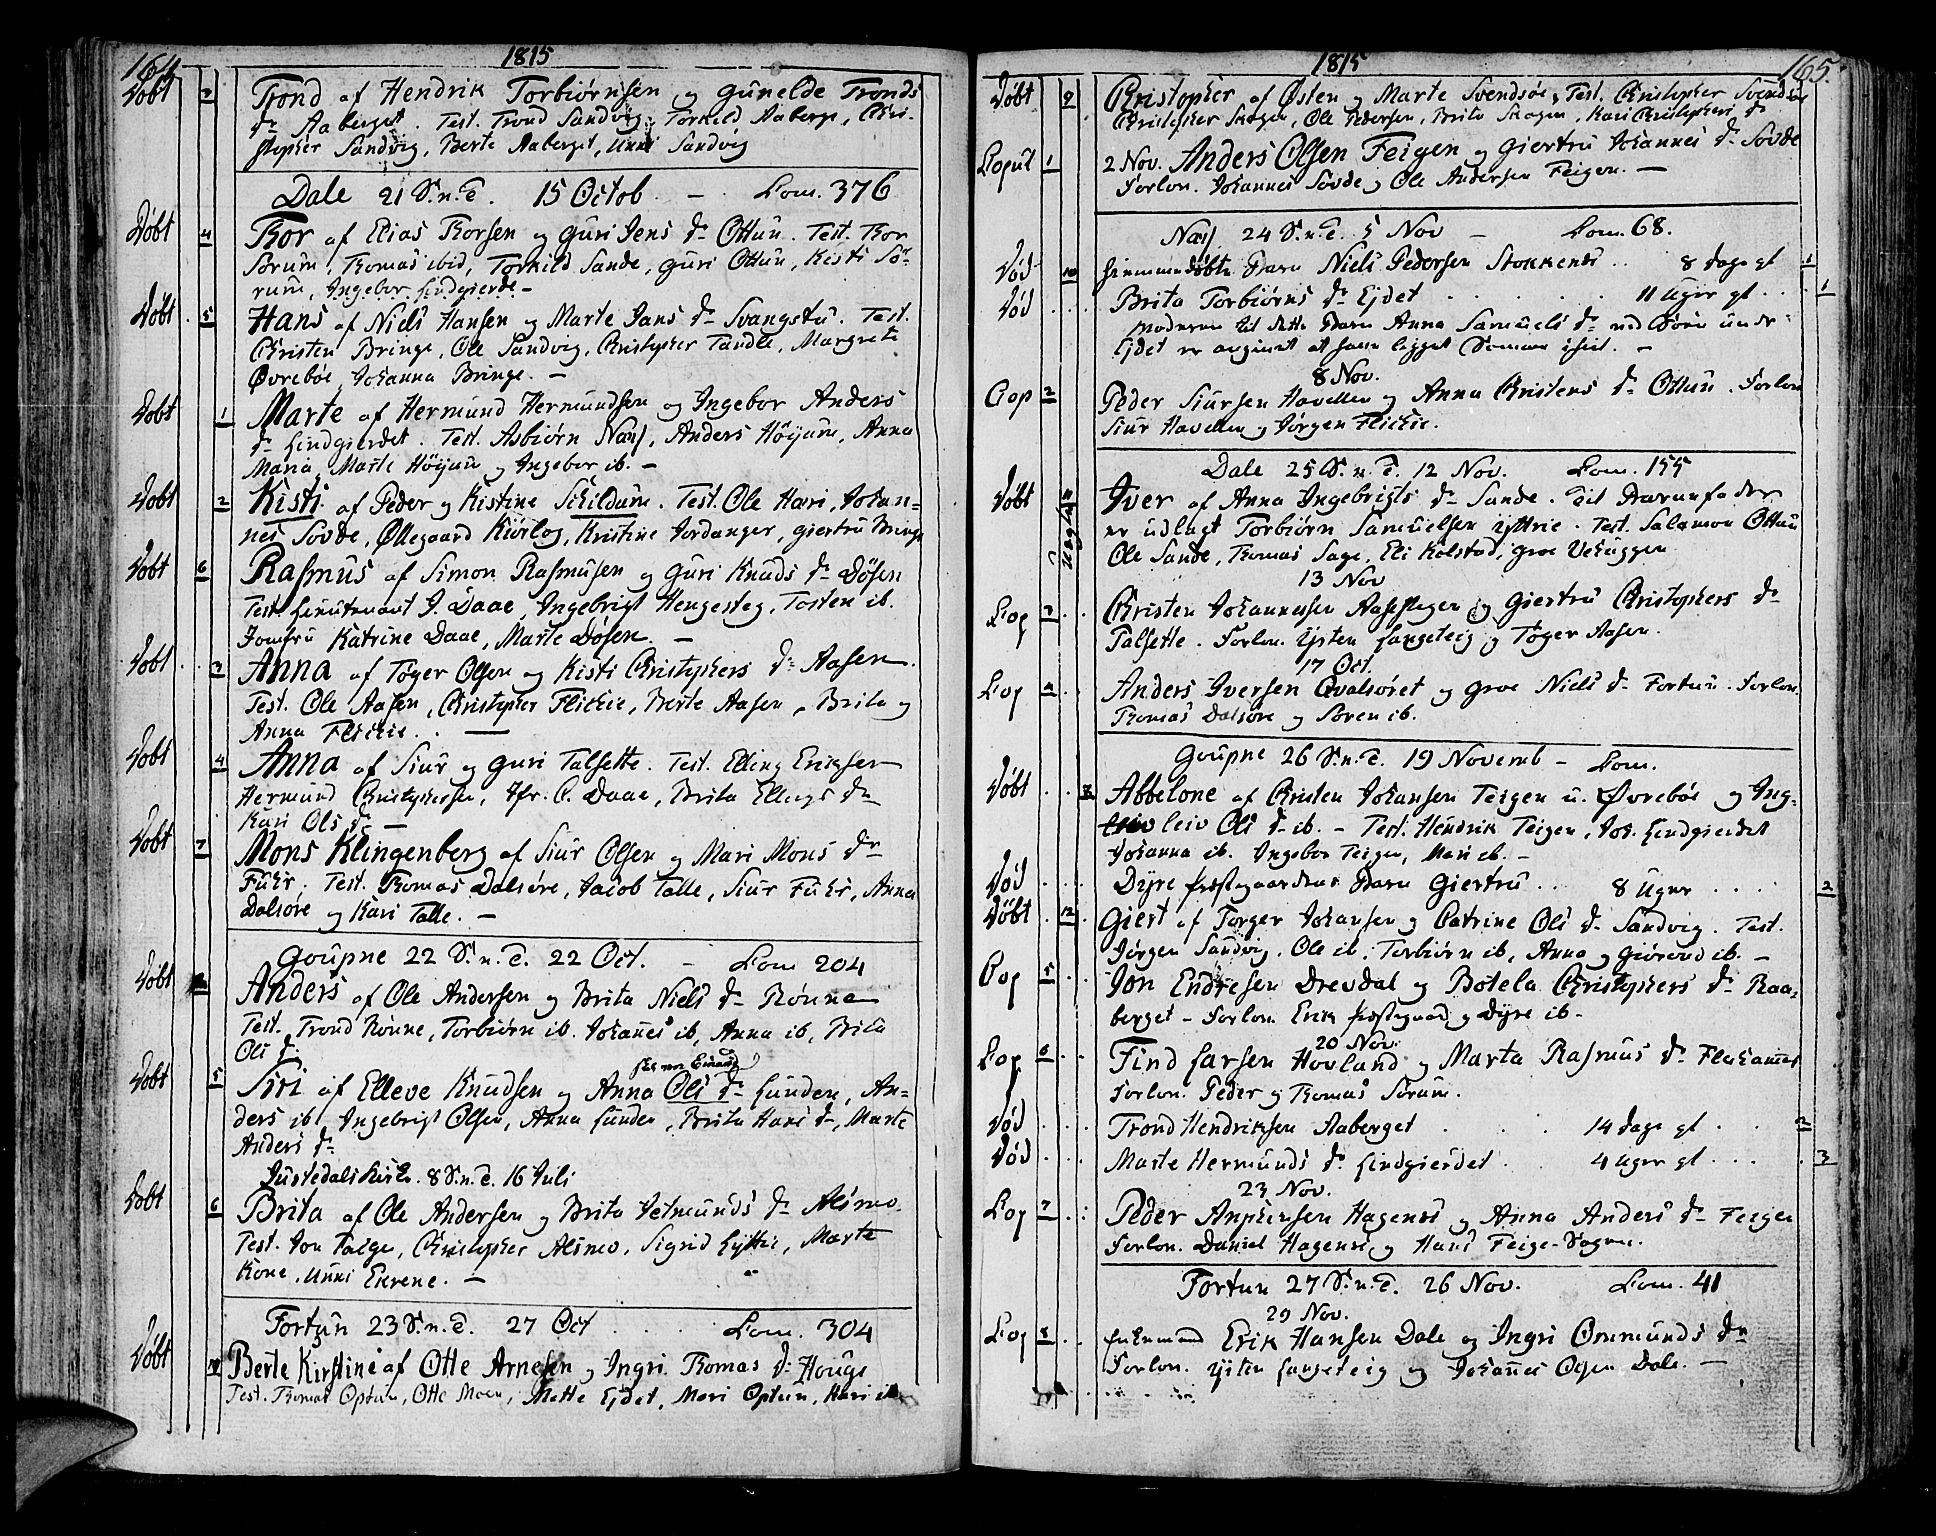 164
1815
Døbt 3 Trond af Hendrik Torbiørnsen og Gunelde Tronds
Dr Aaberget. Test. Trond Sandvig, Torkild Aaberg, Chri-
stopher Sandvig, Berte Aaberget, Unni Sandvig
Dale 21 S. n. T. 15 Octob. - Com. 376
Døbt 4 Thor af Elias Thorsen og Guri Jens Dr Ottun. Test. Thor
Sørum, Thomas ibid, Torkild Sande, Guri Ottun, Kisti Sö-
rum, Ingebor Lindgierde -
Døbt 5 Hans af Niels Hansen og Marte Jans Dr Svangstu. Test.
Christen Bringe, Ole Sandvig, Christopher Tandle, Margrete
Øvrebøe, Johanna Bringe. -
Døbt 1 Marte af Hermund Hermundsen og Ingebor Anders
Dr Lindgierdet. Test. Asbiørn Næss, Anders Höyum, Anna
Maria, Marte Höyum og Ingebor ib. -
Døbt 2 Kisti af Peder og Kistine Skildum. Test. Ole Hari, Johan-
nes Søvde, Øllegaard Kiörlog, Kristine Jordanger, Giertru Bringe
Døbt 6 Rasmus af Simon Rasmusen og Guri Knuds Dr Døsen
Test. Lieutenant J. Daae, Ingebrigt Hengesteg, Tosten ib.
Jomfru Katrine Daae, Marte Døsen. -
Døbt 3 Anna af Tøger Olsen og Kisti Christophers Dr Aasen.
Test. Ole Aasen, Christopher Flickie, Berte Aasen, Brita og
Anna Flickie. -
Døbt 4 Anna af Siur og Guri Talsette. Test. Elling Eriksen
Hermund Christophersen, Jfr. C. Daae, Brita Ellings Dr
Kari Ols Dr -
Døbt 7 Mons Klingenberg af Siur Olsen og Mari Mons Dr
Fuhr. Test. Thomas Dalsøre, Jacob Talle, Siur Fuhr, Anna
Dalsøre og Kari Talle. -
Goupne 22 S. n. T. 22 Oct. - Com 204
Døbt Anders af Ole Andersen og Brita Niels Dr Rønne
Test. Trond Rønne, Torbiørn ib. Johannes ib, Anna ib, Brita
Ols Dr
Døbt 5 Siri af Elleve Knudsen og Anna Ols Dr Lunden, An-
ders ib, Ingebrigt Olsen, Anna Lunden, Brita Hans Dr, Marte
Anders Dr
Justedals Kirke. 8 S. n. T. 16 Juli
Døbt 6 Brita af Ole Andersen og Brita Jetmunds Dr Alsmo.
Test. Jon Faige, Christopher Alsmo, Sigrid Lyttie, Marte
Kone, Unni Ekrene. -
Fortun 23 S. n. T. 27 Oct Com. 304
Døbt Berte Kirstine af Otte Arnesen og Ingri Thomas Dr Houge
Test. Thomas Optun, Otte Moen, Mette Ejdet, Mari Optun, Kari ib
1815
165.
Døbt 9 Christopher af Østen og Marte Svendsøe, Test. Christopher Svendsøe
Christopher Skogen, Ole Pedersen, Brita Skogen, Kari Christophers Dr
Copul 1 2 Nov. Anders Olsen Feigen og Giertru Johannes Dr Søvde
Forlon. Johannes Søvde og Ole Andersen Feigen. -
Næss 24 S. n. T. 5 Nov - Com. 68.
Død 10 hiemmedøbte Barn Niels Pedersen Stokkenes 8 dage gl 1
Død Brita Torbiørns Dr Ejdet 11 Uger gl 1
Moderen til dette Barn Anna Samuels Dr ved Søen under
Ejdet er angivet at have ligget
8 Nov.
Cop 2 Peder Siursen Havellen og Anna Christens Dr Ottun. Forlon
Siur Havellen og Jørgen Flickie.
Dale 25 S. n. T. 12 Nov. Com. 155
Døbt 11 Uægte Iver af Anna Ingebrigts Dr Sande. Til Barnefader
er udlagt Torbiørn Samuelsen Yttrie. Test. Salamon Ottun
Ole Sande, Thomas Sage, Eli Kolstad, Groe Uehuggen
13 Nov
Cop 3 Christen Johannesen Aasehagen og Giertru Christophers Dr
Talsette. Forlon. Østen Langeteig og Tøger Aasen.
17 Oct.
Cop 4 Anders Iversen Qvalsøret og Groe Niels Dr Fortun. Forlon.
Thomas Dalsøre og Søren ib.
Goupne 26 S. n. T. 19 Novemb - Com.
Døbt 8 Abbelone af Christen Johansen Teigen u. Øvrebøe og Ing-
leiv Ols Dr ib. - Test. Hendrik Teigen, Joh. Lindgierdet
Johanna ib. Ingebor Teigen, Mari ib. -
Død Dyre Præstegaardens Barn Giertru 8 Uger 2
Døbt 12 Giert af Torger Johansen og Catrine Ols Dr Sandvig. Test.
Jørgen Sandvig, Ole ib, Torbiørn ib, Anna og Giörond ib. -
Cop 5 Jon Endresen Drevdal og Botela Christophers Dr Raa-
berget - Forlon. Erik Præstegaard og Dyre ib -
20 Nov.
Cop 6 Find Larsen Hovland og Marta Rasmus Dr Flahamer
Forlon. Peder og Thomas Sørum.
Død Trond Hendriksen Aaberget 14 dage gl 2
Død Marte Hermunds Dr Lindgierdet 4 Uger gl 3
23 Nov.
Cop 7 Peder Anphinsen Hagenes og Anna Anders Dr Feigen
Forlon. Daniel Hagenes og Hans Feige-Skogen.
Fortun 27 S. n. T. 26 Nov. Com. 41
29 Nov.
Cop 8 Enkemand Erik Hansen Dale og Ingri Ommunds Dr
Forlon. Østen Langeteig og Johannes Olsen Dale. -